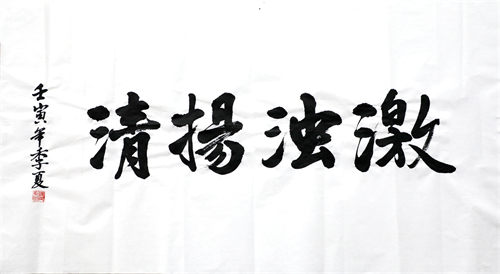 激浊揚清
壬寅年季夏